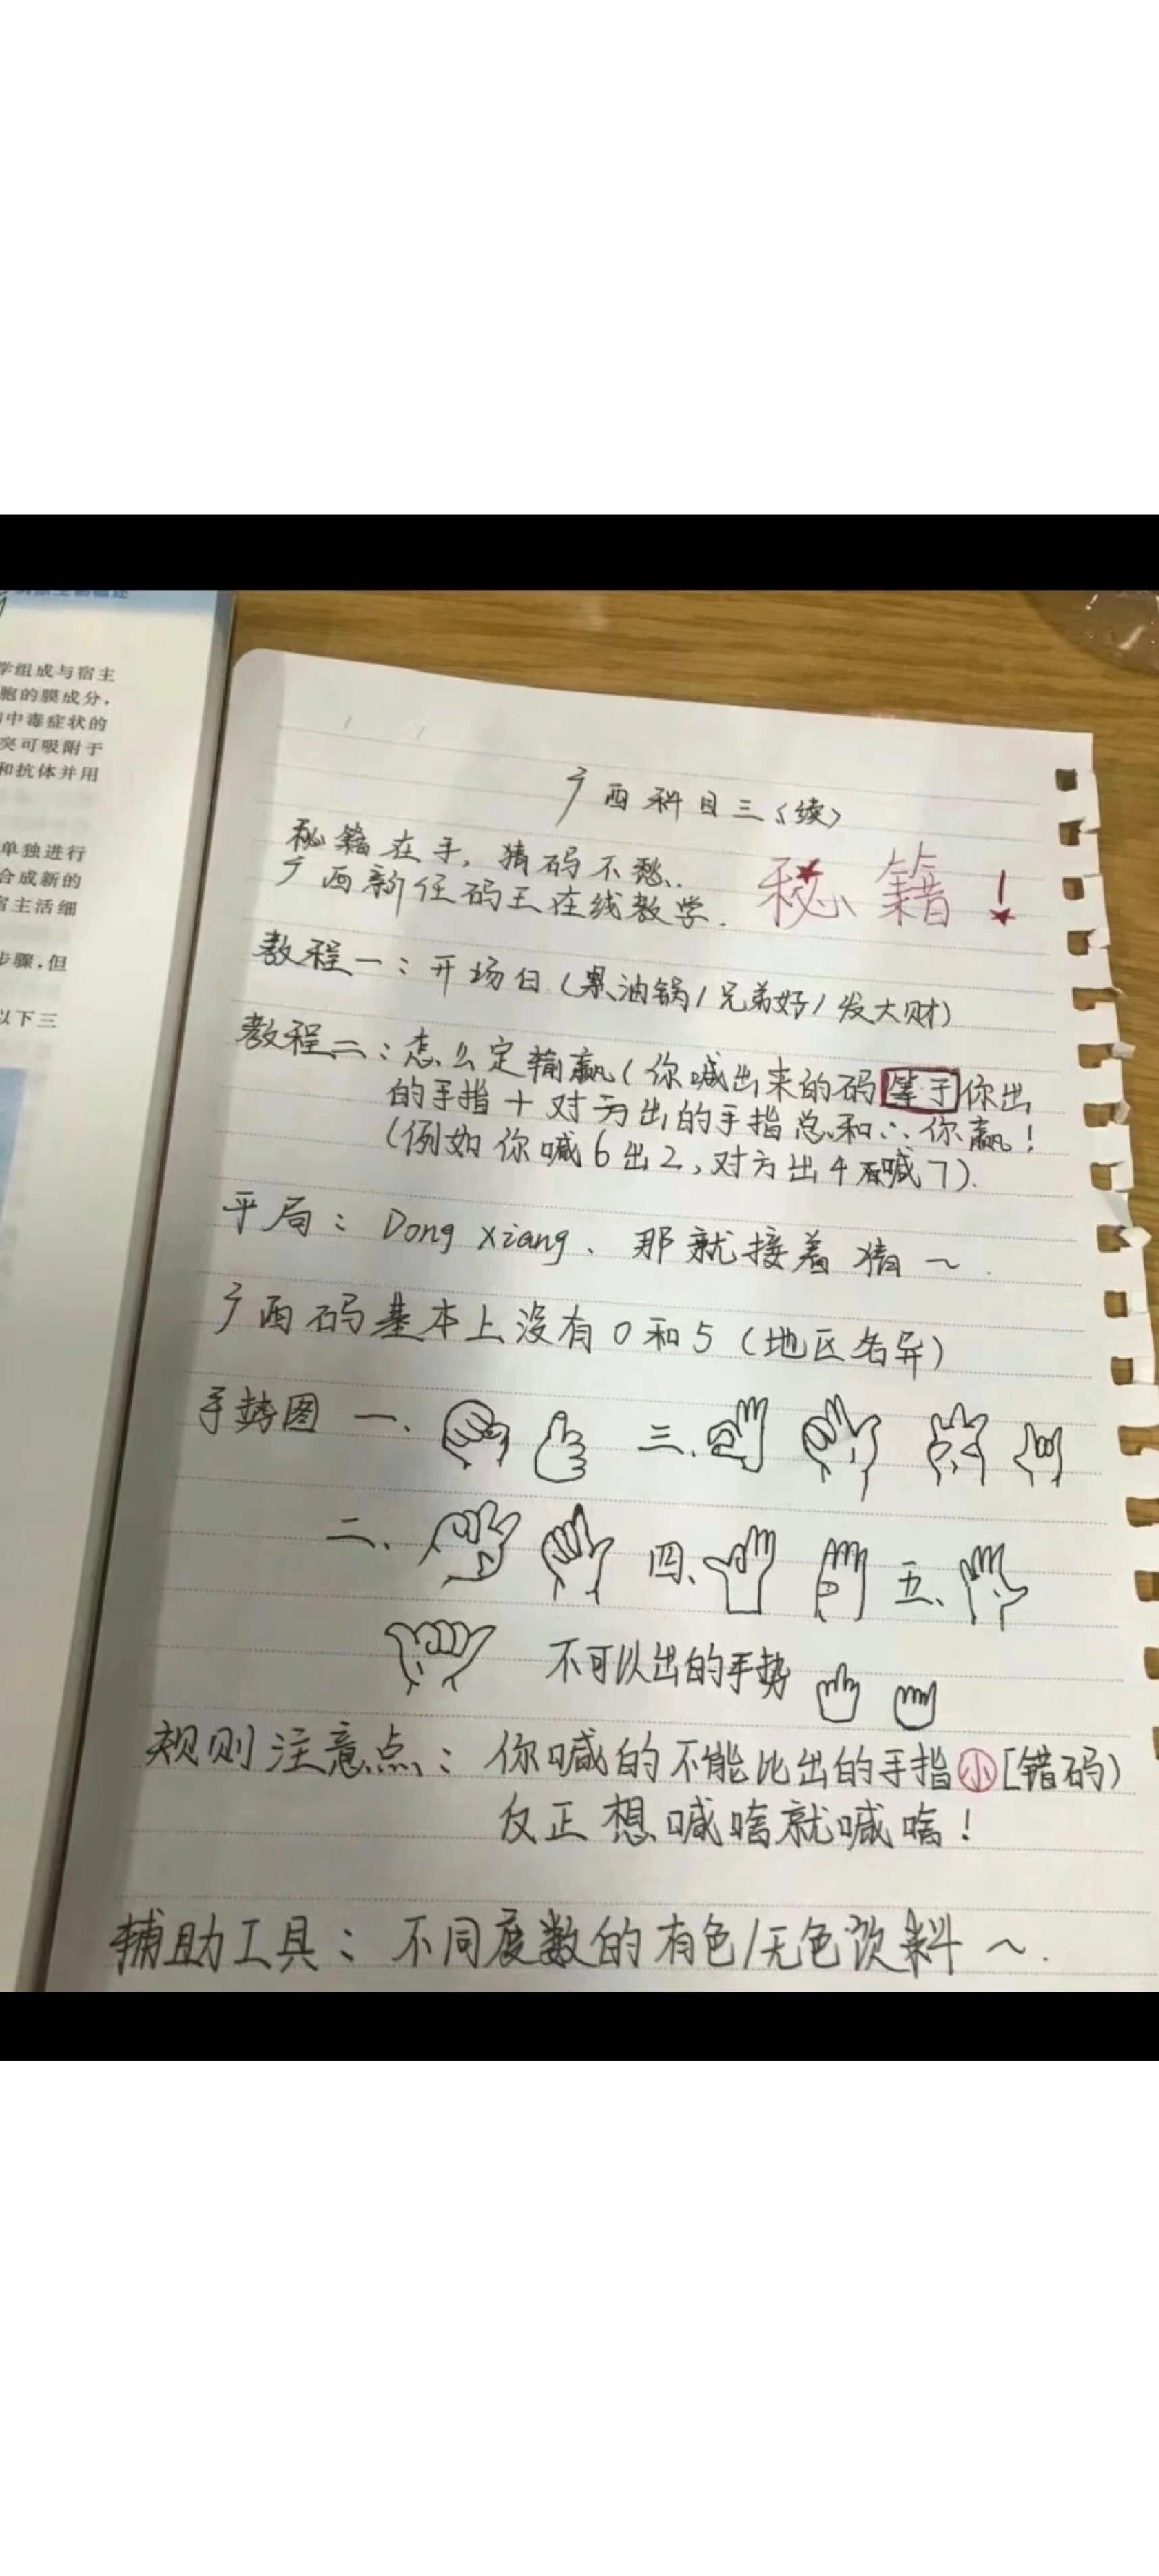 学组成与宿主
胞的膜成分，
中毒症状的
突可吸附于
和抗体并用
单独进行
合成新的
宿主活细
步骤，但
以下三
广西科目三（续）
秘籍在手，猜码不愁.
广西新任码王在线教学.
秘籍！
教程一：开场白（黑油锅/兄弟好/发大财）
教程二：怎么定输赢（你喊出来的码等于你出
的手指+对方出的手指总和∴你赢！
（例如你喊6出2，对方出4喊7）.
平局：Dong xiang、那就接着猜～.
广西码基本上没有0和5（地区各异）
手势图 一、 三、
二、 四、 五、
不可以出的手势
规则注意点：你喊的不能比出的手指小[错码）
反正想喊啥就喊啥！
辅助工具：不同度数的有色/无色饮料～.